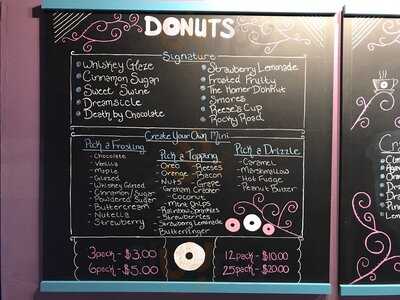 DONUTS
Signature
Whiskey Glaze
Cinnamon Sugar
Sweet Swine
Dreamsicle
Death by Chocolate
Strawberry Lemonade
Frosted Fruity
The Homer DohNut
S'mores
Reese's Cup
Rocky Road
Create Your Own Mini
Pick a Frosting
- Chocolate
- Vanilla
- Maple
- Glazed
- Whiskey Glazed
- Cinnamon/Sugar
- Powdered Sugar
- Buttercream
- Nutella
- Strawberry
Pick a Topping
- Oreo - Reese's
- Orange - Bacon
- Nuts - Grape
- Graham Cracker
- Coconut
- Mini Chips
- Rainbow Sprinkles
- Strawberries
- Strawberry Lemonade
- Butterfinger
Pick a Drizzle
- Caramel
- Marshmallow
- Hot Fudge
- Peanut Butter
3pack - $3.00
6pack - $5.00
12pack - $10.00
25pack - $20.00